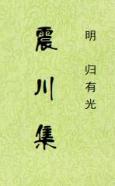 明 归有光
震川集